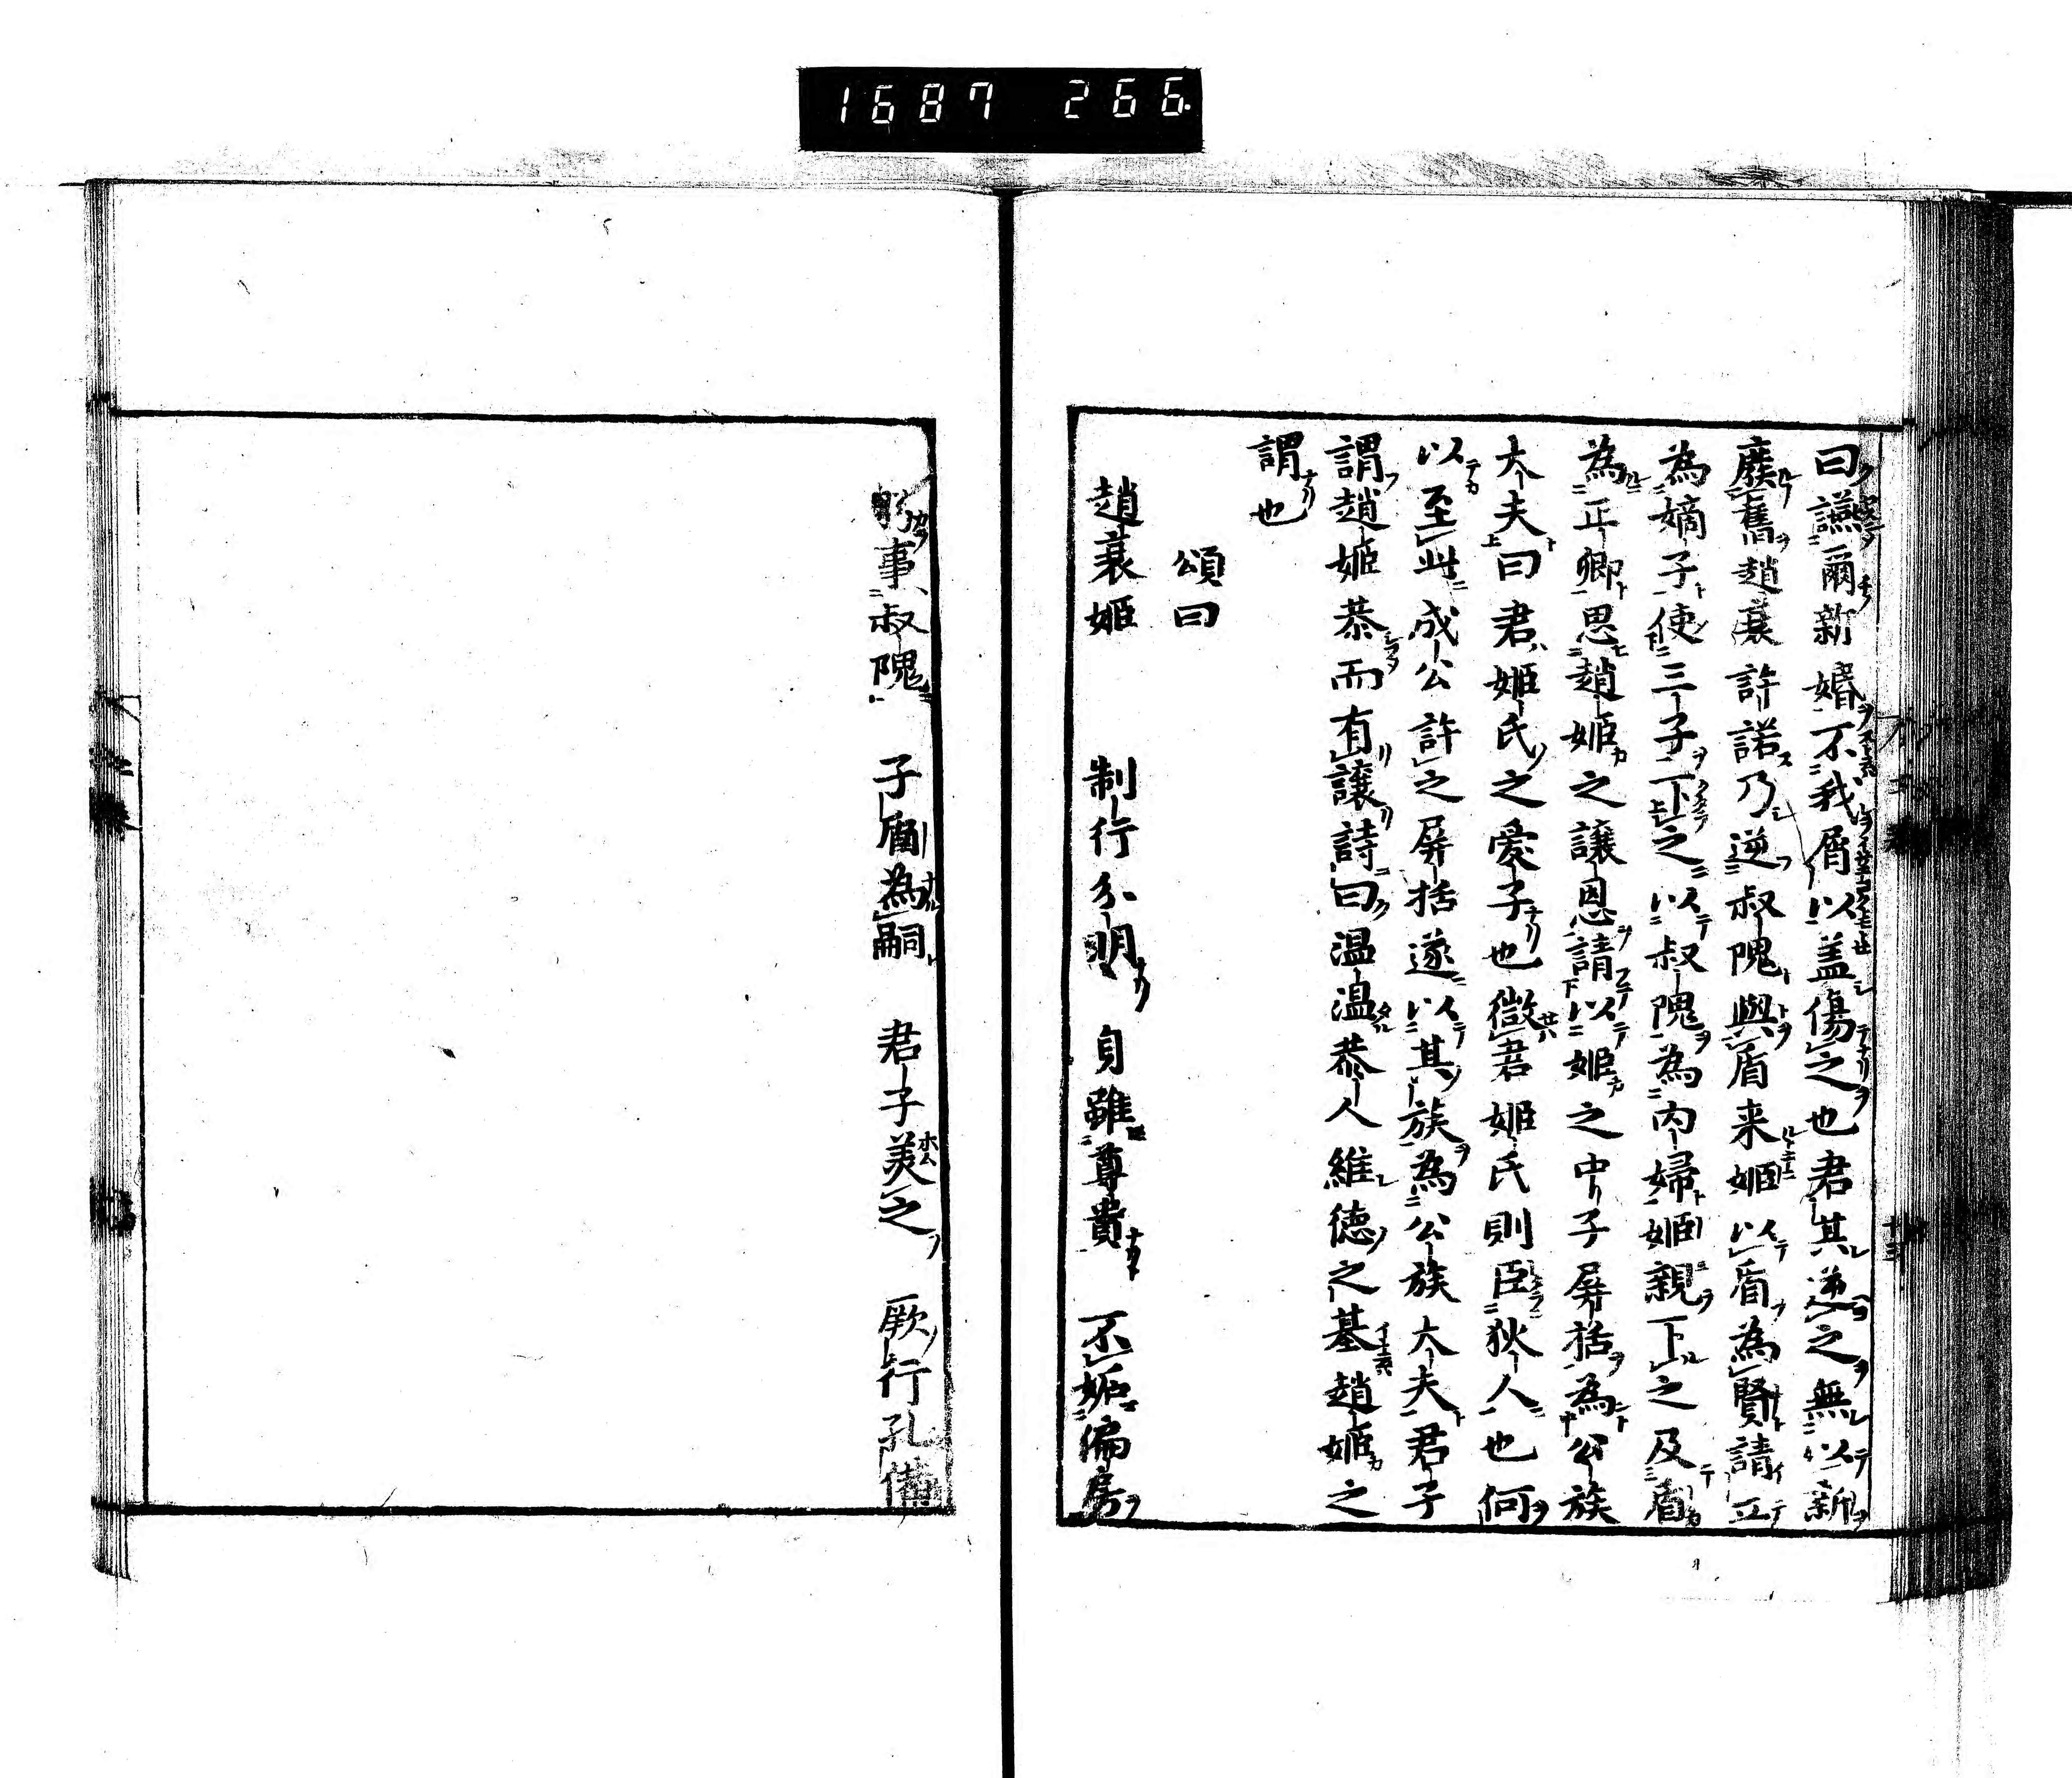 1687 266
曰讌爾新婚不我屑以盖傷之也君其逆之無以新
廢舊趙衰許諾乃逆叔隗與盾来姬以盾為賢請立
為嫡子使三子下之以叔隗為内婦姬親下之及盾
為正卿思趙姬之讓恩請以姬之中子屏括為公族
大夫曰君姬氏之愛子也微君姬氏則臣狄人也何
以至此成公許之屏括遂以其族為公族大夫君子
謂趙姬恭而有讓詩曰温温恭人維徳之基趙姬之
謂也
頌曰
趙衰姬 制行分明 身雖尊貴 不妬偏房
事叔隗 子盾為嗣 君子美之 厥行孔備